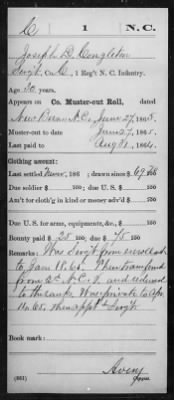 C | 1 | N. C.
Joseph D. Congleton
Sergt., Co. C, 1 Reg't N. C. Infantry.
Age 30 years.
Appears on Co. Muster-out Roll, dated
New Berne N.C., June 27, 1865.
Muster-out to date June 27, 1865.
Last paid to Aug 31, 1864.
Clothing account:
Last settled 186 ; drawn since $ 69 66/100
Due soldier $ 100; due U. S. $ 100
Am't for cloth'g in kind or money adv'd $ 100
Due U. S. for arms, equipments, &c., $ 100
Bounty paid $ 25 100; due $ 75 100
Remarks: Was Sergt from enrollment
to Jan 18. 65. Then transferred
from 2d N.C. V. and reduced
to the ranks. Was private to Apr
1 65, then appt Sergt.
Book mark:
Avery
(361) Copyist.